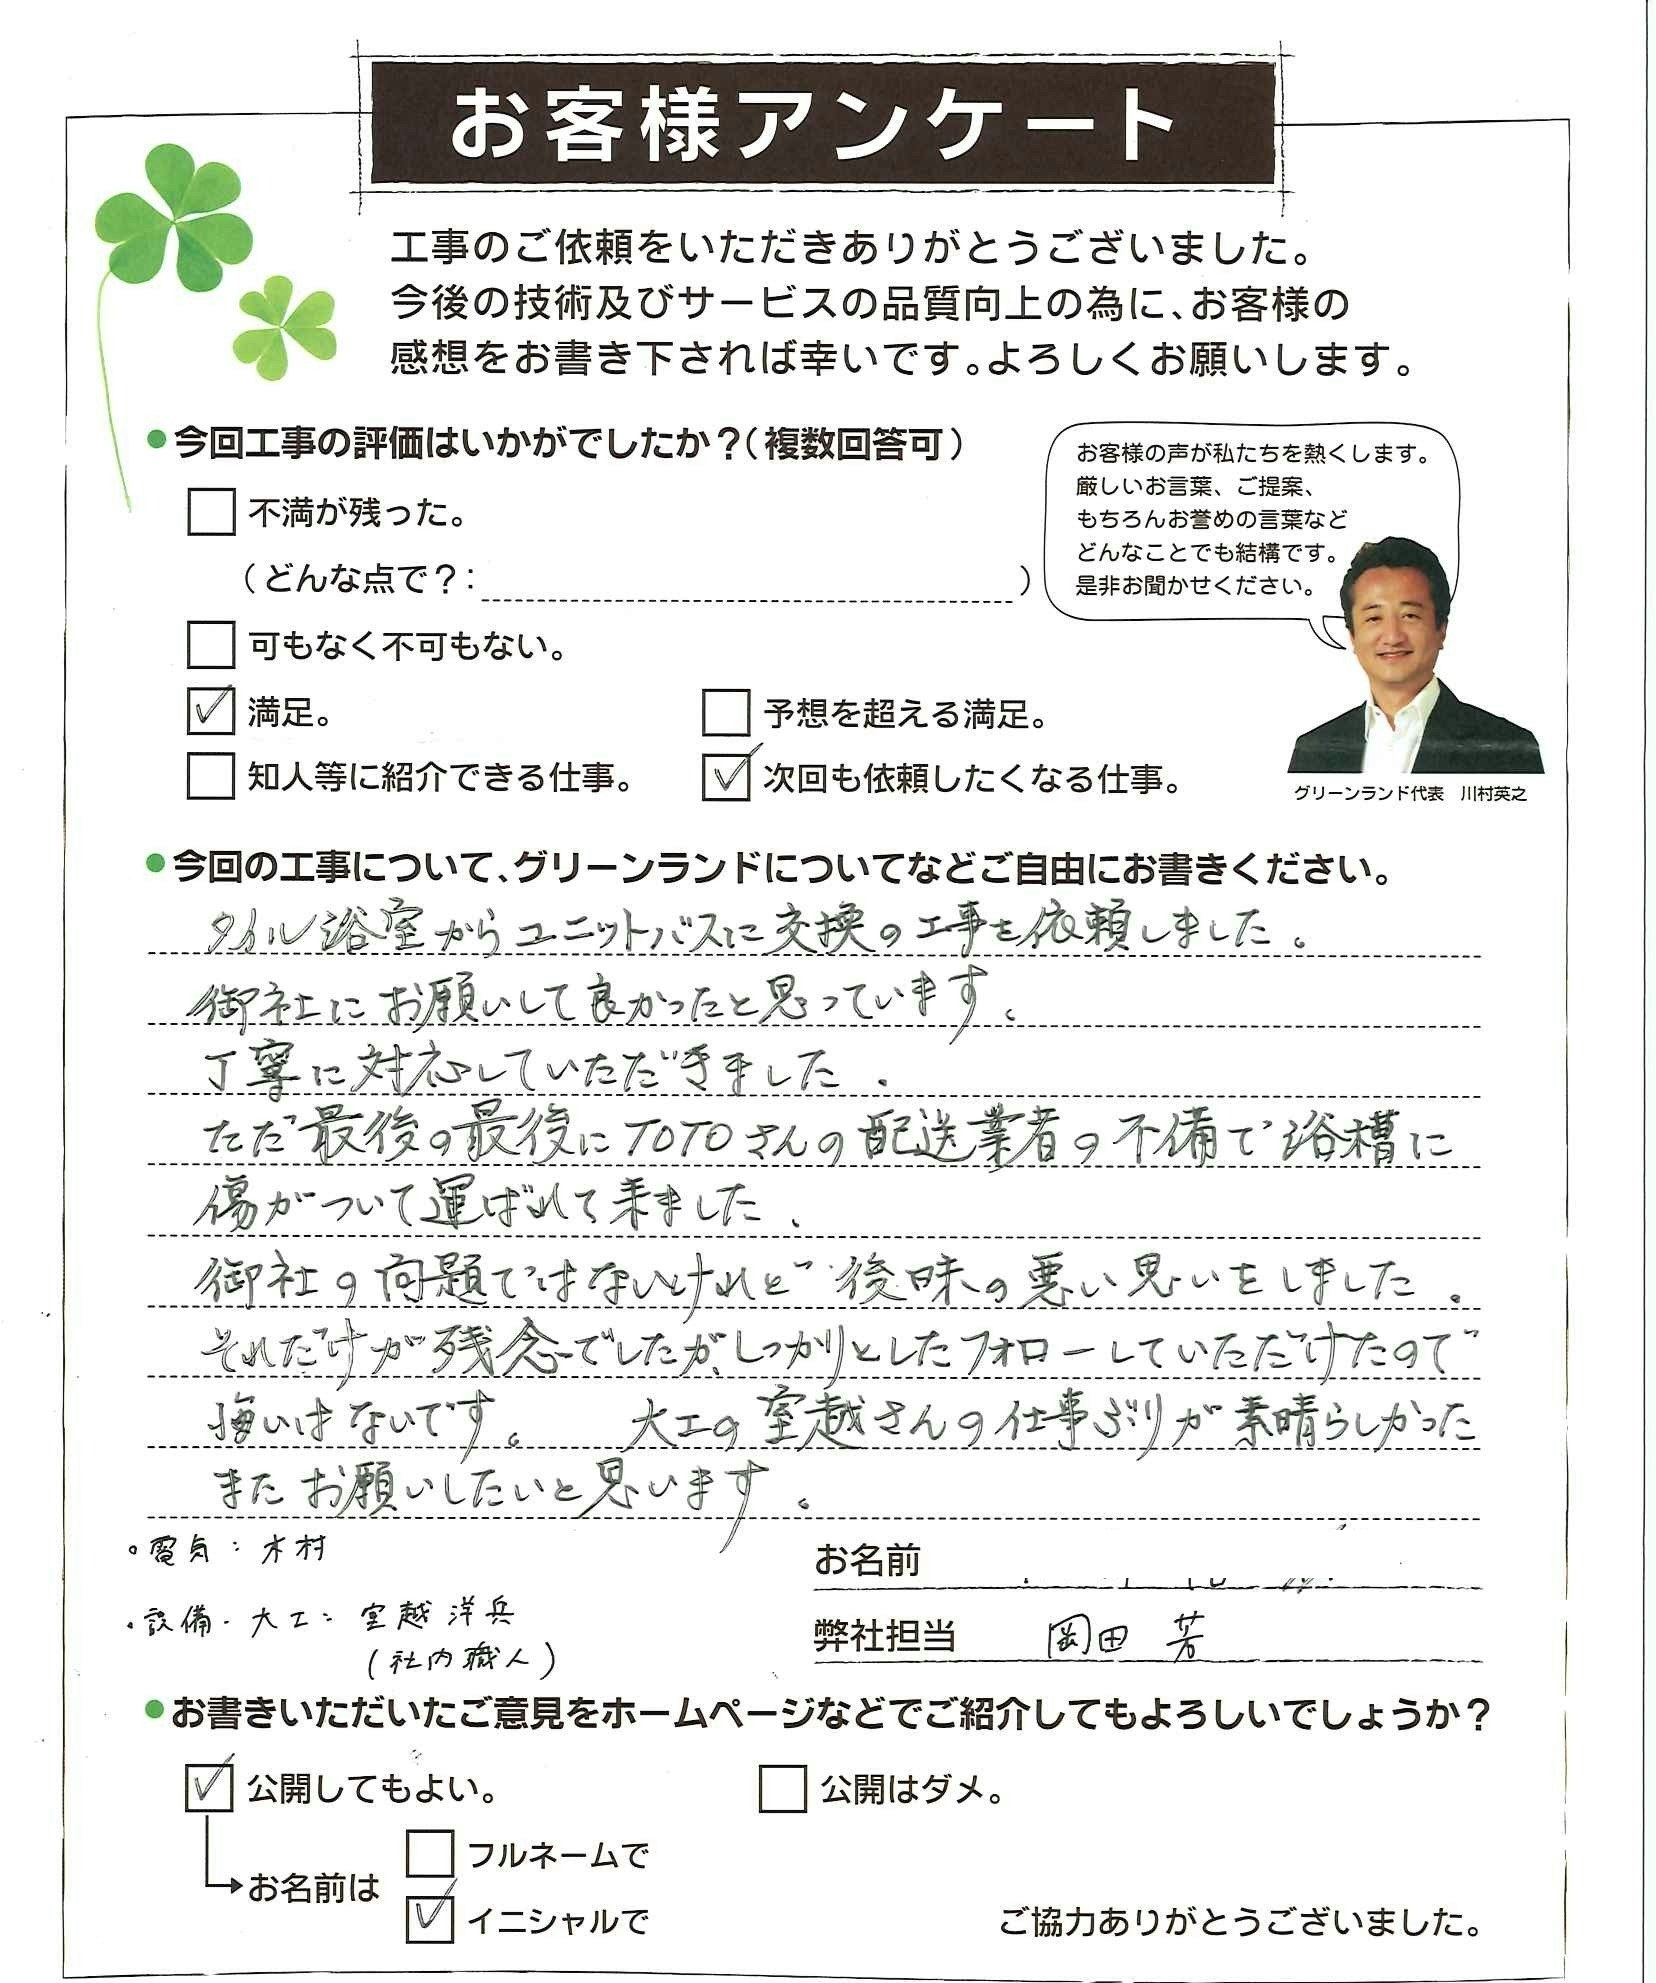 お客様アンケート
工事のご依頼をいただきありがとうございました。
今後の技術及びサービスの品質向上の為に、お客様の
感想をお書き下されば幸いです。よろしくお願いします。
●今回工事の評価はいかがでしたか？（複数回答可）
お客様の声が私たちを熱くします。
厳しいお言葉、ご提案、
もちろんお誉めの言葉など
どんなことでも結構です。
是非お聞かせください。
不満が残った。
（どんな点で？：　）
可もなく不可もない。
満足。
予想を超える満足。
知人等に紹介できる仕事。
次回も依頼したくなる仕事。
グリーンランド代表　川村英之
●今回の工事について、グリーンランドについてなどご自由にお書きください。
タイル浴室からユニットバスに交換の工事を依頼しました。
御社にお願いして良かったと思っています。
丁寧に対応していただきました。
ただ最後の最後にTOTOさんの配送業者の不備で浴槽に
傷がついて運ばれて来ました、
御社の問題ではないけれど後味の悪い思いをしました。
それだけが残念でしたが、しっかりとしたフォローしていただけたので
悔いはないです。　大工の室越さんの仕事ぶりが素晴らしかった
またお願いしたいと思います。
・電気：木村
・設備・大工：室越洋兵
（社内職人）
お名前
弊社担当　岡田　芳
●お書きいただいたご意見をホームページなどでご紹介してもよろしいでしょうか？
公開してもよい。
公開はダメ。
お名前は
フルネームで
イニシャルで
ご協力ありがとうございました。